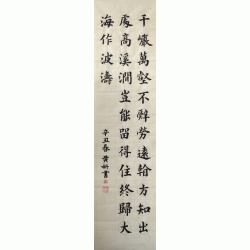 千巖萬壑不辭勞遠看方知出
處高溪澗豈能留得住終歸大
海作波濤
辛丑春黄妍書